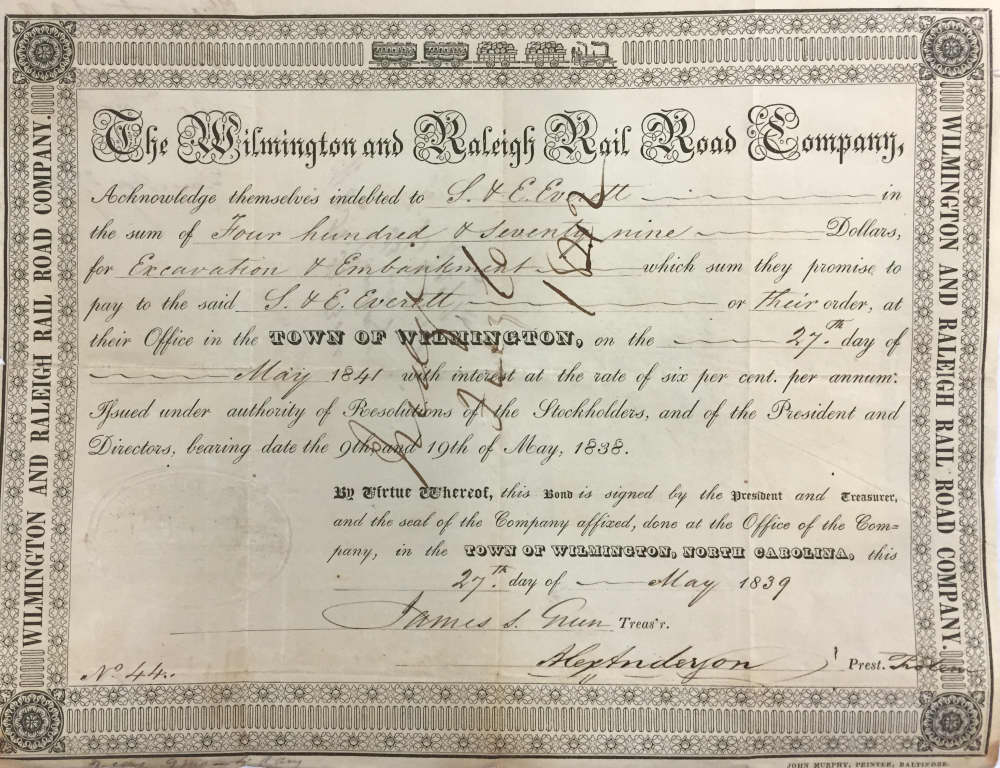 The Wilmington and Raleigh Rail Road Company,
Acknowledge themselves indebted to S. & E. Everett in
the sum of Four hundred & seventy nine Dollars,
for Excavation & Embankment which sum they promise to
pay to the said S. & E. Everett or their order, at
their Office in the TOWN OF WILMINGTON, on the 27th. day of
May 1841 with interest at the rate of six per cent. per annum:
Issued under authority of Resolutions of the Stockholders, and of the President and
Directors, bearing date the 9th and 19th of May, 1838.
By Virtue Whereof, this Bond is signed by the President and Treasurer,
and the seal of the Company affixed, done at the Office of the Com=
pany, in the TOWN OF WILMINGTON, NORTH CAROLINA, this
27th. day of May 1839
James S. Green Treas'r.
Alex Anderson Prest.
No. 44.
WILMINGTON AND RALEIGH RAIL ROAD COMPANY.
WILMINGTON AND RALEIGH RAIL ROAD COMPANY.
JOHN MURPHY, PRINTER, BALTIMORE.